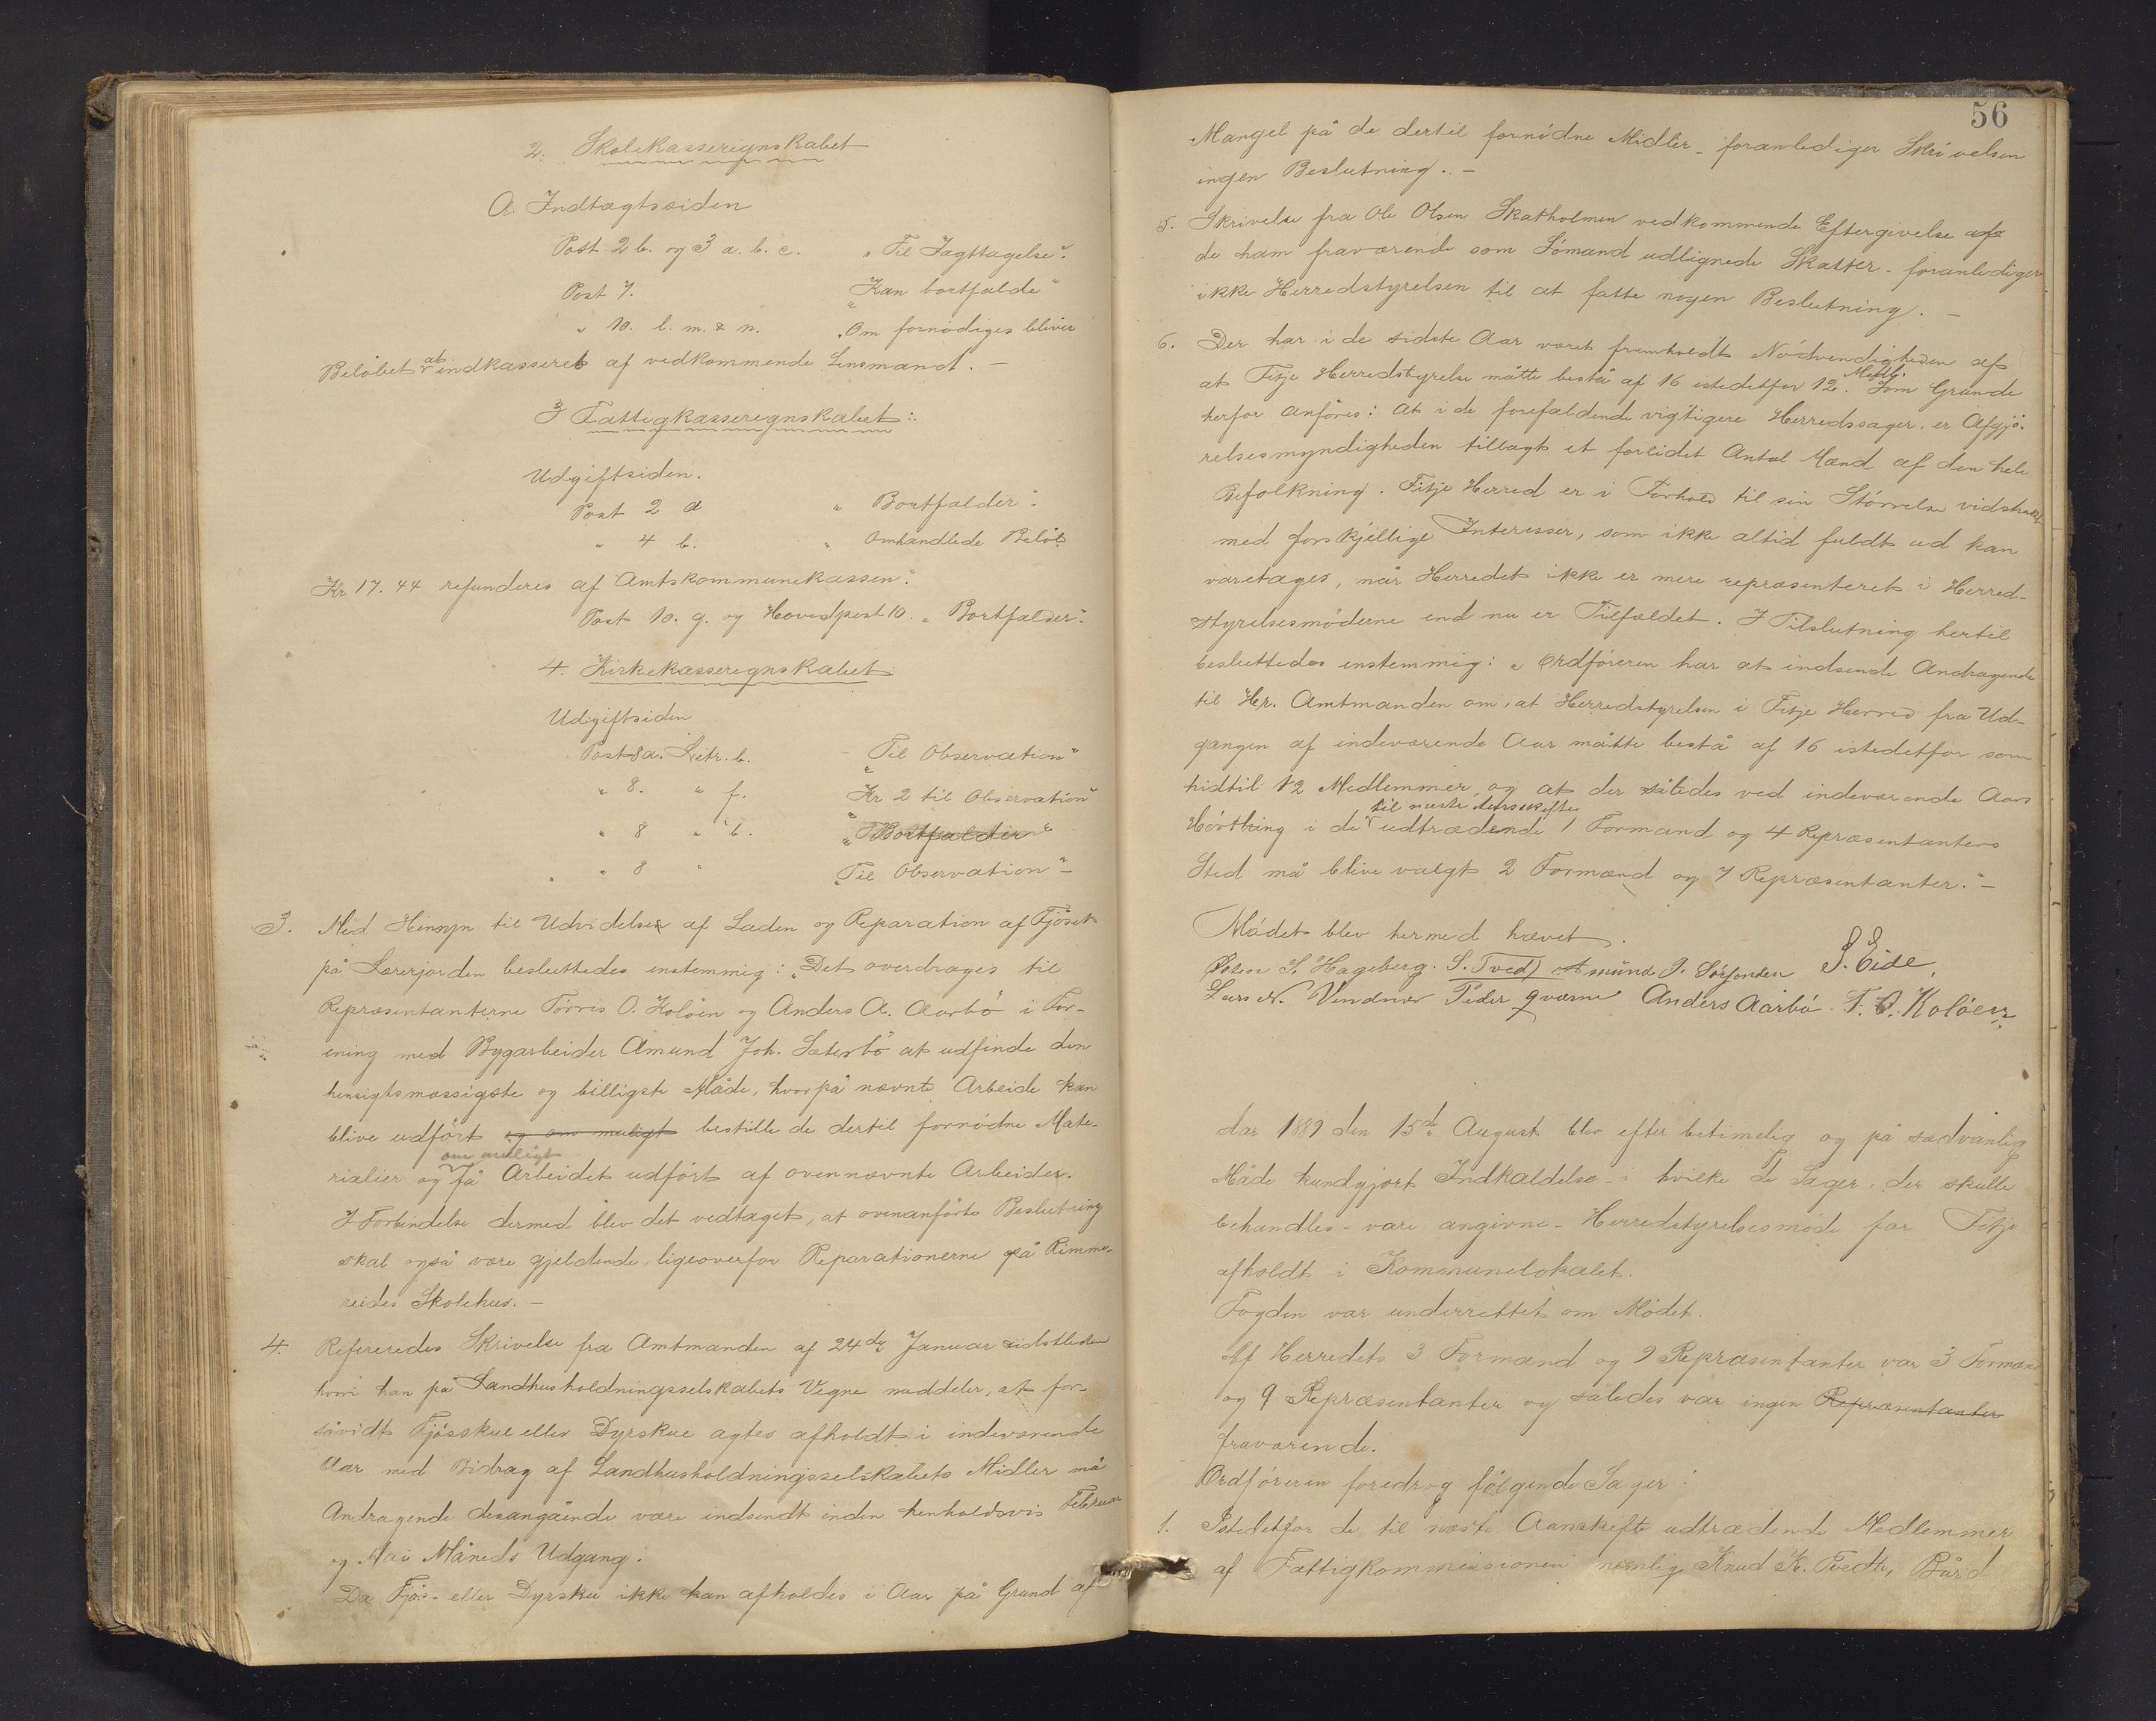 2. Skolekasseregnskabet
A. Indtægtssiden
Post 2 b. og 3 a. b. c. „Til Iagttagelse“.
Post 7. „Kan bortfalde“
„ 10. l. m. & n. „Om fornødiges bliver
Beløbet at indkasseret af vedkommende Lensmand. –
3 Fattigkasseregnskabet:
Udgiftsiden.
Post 2 a „Bortfalder“.
„ 4 b. „Omhandlede Beløb
Kr 17.44 refunderes af Amtskommunekassen“.
Post 10. g. og Hovedpost 10. „Bortfalder“.
4. Kirkekasseregnskabet
Udgiftsiden
Post 8a. Litr. b. „Til Observation“
„ 8. „ f. „Kr 2 til Observation“
„ 8 „ b. „Bortfalder“
„ 8 „ „Til Observation“ –
3. Med Hensyn til Udvidelse af Laden og Reparation af Fjøset
på Lærerjorden besluttedes enstemmig: „Det overdrages til
Repræsentanterne Tørres O. Koløen og Anders A. Aarbø i For-
ening med Bygarbeider Amund Joh. Sæterbø at udfinde den
hensigtsmæssigste og billigste Måde, hvorpå nævnte Arbeide kan
blive udført og om muligt bestille de dertil fornødne Mate-
rialier og om muligt få Arbeidet udført af ovennævnte Arbeider.
I Forbindelse dermed blev det vedtaget, at ovenanførte Beslutning
skal også være gjeldende ligeoverfor Reparationerne på Rimme-
reides Skolehus. –
4. Refereredes Skrivelse fra Amtmanden af 24de Januar sidstleden
hvori han på Landhusholdningsselskabets Vegne meddeler, at for-
såvidt Fjøsskue eller Dyrskue agtes afholdt i indeværende
Aar med Bidrag af Landhusholdningsselskabets Midler må
Andragende desangående være indsendt inden henholdsvis Februar
og Mai Måneds Udgang.
Da Fjøs- eller Dyrskue ikke kan afholdes i Aar på Grund af
56
Mangel på de dertil fornødne Midler – foranlediger Skrivelsen
ingen Beslutning. –
5. Skrivelse fra Ole Olsen Skatholmen vedkommende Eftergivelse af
de ham fraværende som Sømand udlignede Skatter – foranlediger
ikke Herredstyrelsen til at fatte nogen Beslutning. –
6. Der har i de sidste Aar været fremholdt Nødvendigheden af
at Fitje Herredstyrelse måtte bestå af 16 istedetfor 12 Medl. Som Grunde
herfor anføres: At i de forefaldende vigtigere Herredssager er Afgjø-
relsesmyndigheden tillagt et forlidet Antal Mænd af den hele
Befolkning. Fitje Herred er i Forhold til sin Størrelse vidstrakt
med forskjellige Interesser, som ikke altid fuldt ud kan
varetages, når Herredet ikke er mere repræsenteret i Herred-
styrelsesmøderne end nu er Tilfældet. I Tilslutning hertil
besluttedes enstemmig: „Ordføreren har at indsende Andragende
til Hr. Amtmanden om, at Herredstyrelsen i Fitje Herred fra Ud-
gangen af indeværende Aar måtte bestå af 16 istedetfor som
hidtil 12 Medlemmer, og at der således ved indeværende Aars
til næste Aarsskifte
i de udtrædende 1 Formand og 4 Repræsentanters
Sted må blive valgt 2 Formænd og 7 Repræsentanter.“ –
Mødet blev hermed hævet.
S. Hageberg. S. Tvedt Amund J. Sørfonden S. Eide.
Lars N. Vendnes Peder Qværne Anders Aarbø T. O. Koløen
Aar 1889 den 15de August blev efter betimelig og på sædvanlig
Måde kundgjort Indkaldelse – i hvilke de Sager, der skulle
behandles – vare angivne – Herredstyrelsesmøde for Fitje
afholdt i Kommunelokalet.
Fogden var underrettet om Mødet.
Af Herredets 3 Formænd og 9 Repræsentanter var 3 Formænd
og 9 Repræsentanter og således var ingen Repræsentanter
fraværende.
Ordføreren foredrog følgende Sager:
1. Istedetfor de til næste Aarsskifte udtrædende Medlemmer
af Fattigkommissionen nemlig Knud K. Tvedte, Bård